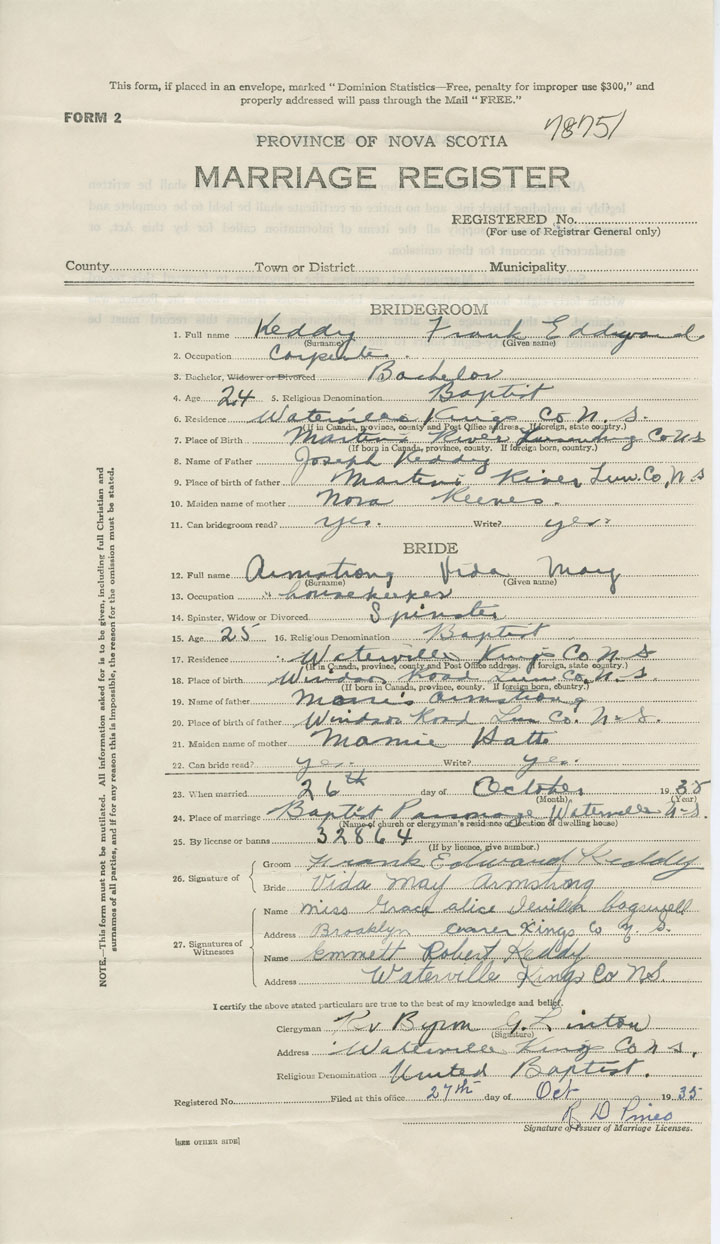 This form, if placed in an envelope, marked "Dominion Statistics—Free, penalty for improper use $300," and
properly addressed will pass through the Mail "FREE."
FORM 2
78751
PROVINCE OF NOVA SCOTIA
MARRIAGE REGISTER
REGISTERED No.
(For use of Registrar General only)
County Town or District Municipality
BRIDEGROOM
1. Full name Keddy Frank Eddward
(Surname) (Given name)
2. Occupation Carpenter.
3. Bachelor, Widower or Divorced Bachelor
4. Age 24 5. Religious Denomination Baptist
6. Residence Waterville Kings Co N. S.
(If in Canada, province, county and Post Office address. If foreign, state country.)
7. Place of Birth Martins River Lunenburg Co N S
(If born in Canada, province, county. If foreign born, country.)
8. Name of Father Joseph Keddy
9. Place of birth of father Martins River Lun. Co, N S
10. Maiden name of mother Nora Keeves.
11. Can bridegroom read? yes. Write? yes.
BRIDE
12. Full name Armstrong Vida May
(Surname) (Given name)
13. Occupation housekeeper
14. Spinster, Widow or Divorced Spinster
15. Age 25 16. Religious Denomination Baptist
17. Residence Waterville Kings Co N S
(If in Canada, province, county and Post Office address. If foreign, state country.)
18. Place of birth Windsor Road Lun Co, N. S.
(If born in Canada, province, county. If foreign born, country.)
19. Name of father Morris Armstrong
20. Place of birth of father Windsor Road Lun Co. N. S.
21. Maiden name of mother Mamie Hatt
22. Can bride read? yes. Write? yes.
23. When married 26th day of October 1935
(Month) (Year)
24. Place of marriage Baptist Parsonage Waterville N. S.
(Name of church or clergyman's residence or location of dwelling house)
25. By license or banns 32864
(If by licence, give number.)
26. Signature of Groom Frank Edward Keddy
Bride Vida May Armstrong
27. Signatures of Witnesses
Name Miss Grace alice cogswell
Address Brooklyn Kings Co N. S.
Name Emmett Robert Keddy
Address Waterville Kings Co N.S.
I certify the above stated particulars are true to the best of my knowledge and belief.
Clergyman Rv Byron G. Linton
(Signature)
Address Waterville Kings Co N S.
Religious Denomination United Baptist.
Registered No. Filed at this office 27th day of Oct 1935
R D Pineo
Signature of Issuer of Marriage Licenses.
[SEE OTHER SIDE]
NOTE.—This form must not be mutilated. All information asked for is to be given, including full Christian and
surnames of all parties, and if for any reason this is impossible, the reason for the omission must be stated.